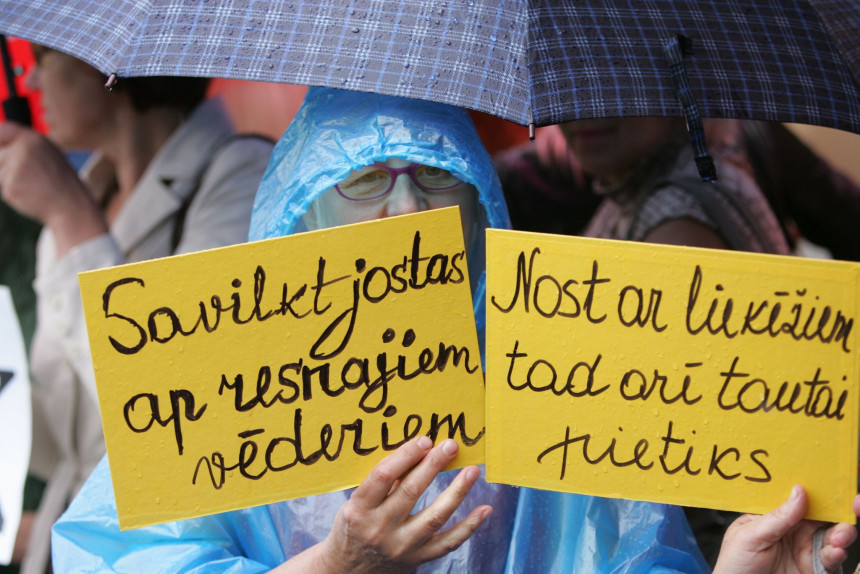 Savilkt jostas
ap resnajiem
vēderiem
Nost ar liekēžiem
tad arī tautai
pietiks